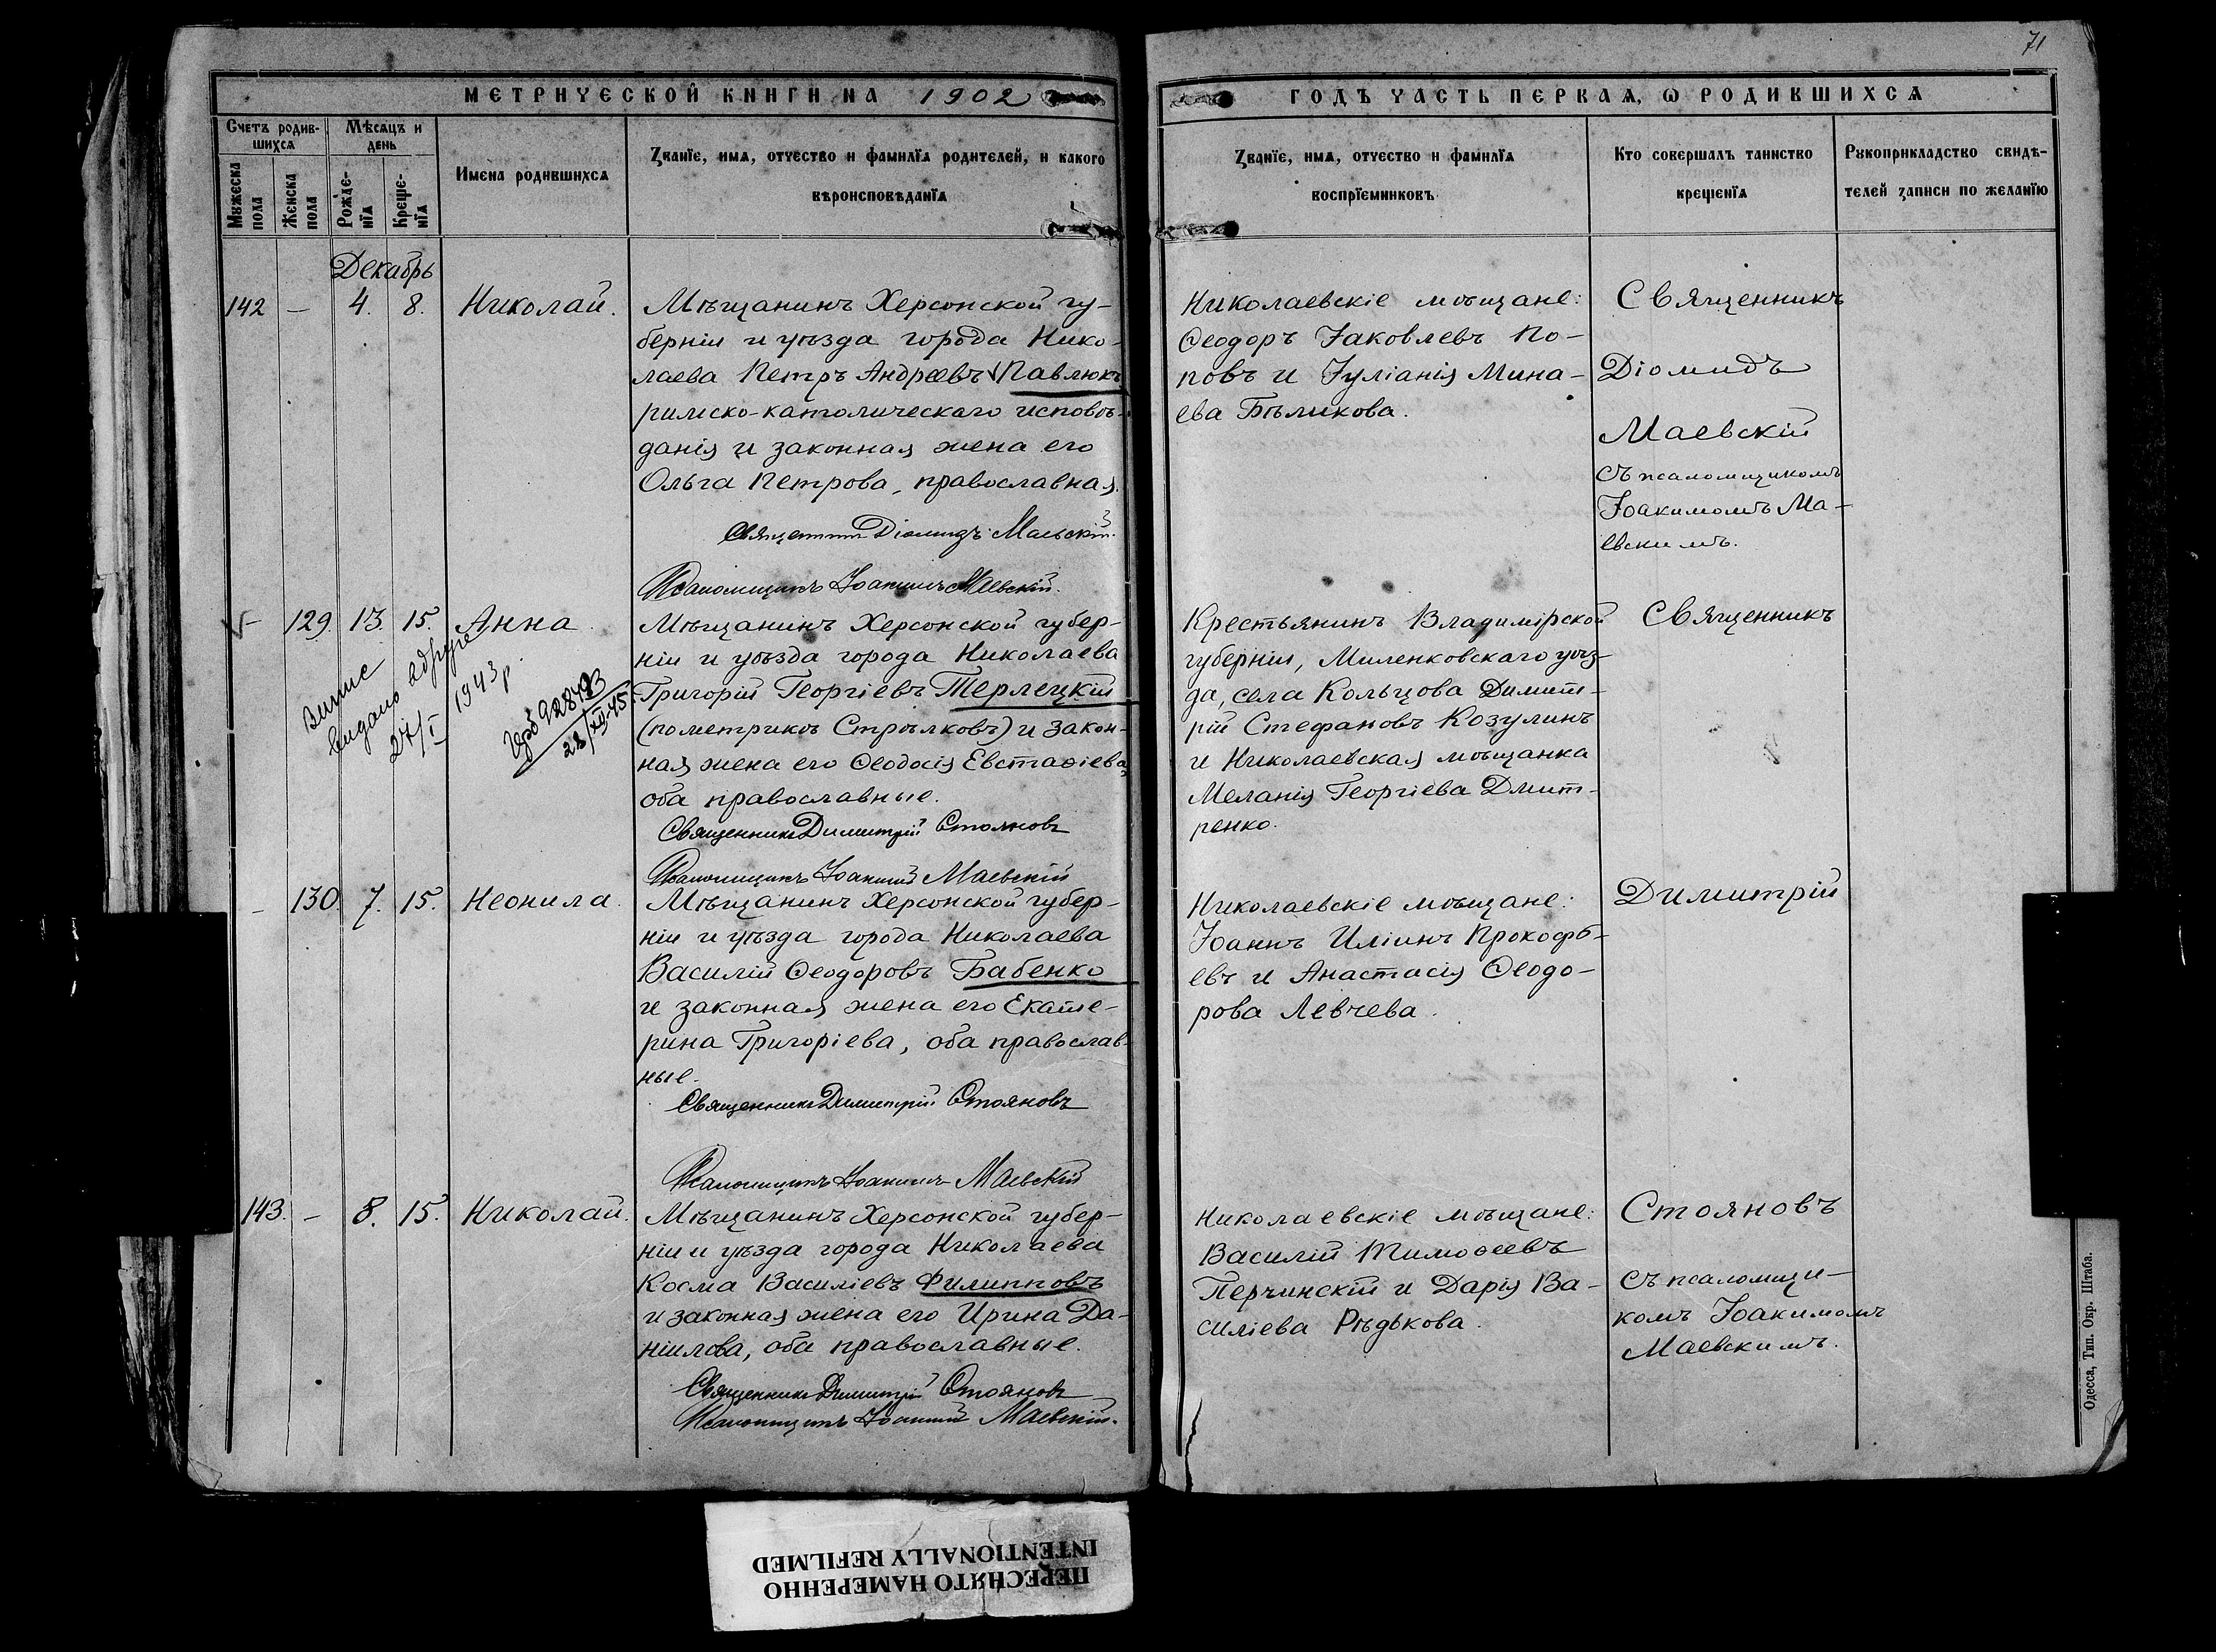 71
МЕТРИЧЕСКОЙ КНИГИ НА 1902
ГОДЪ ЧАСТЬ ПЕРВАѦ, Ѡ РОДИВШИХСѦ
Счетъ родив-
шихсѧ
Мѣсѧцъ и
день
Мꙋжеска
пола
Женска
пола
Рожде-
нїѧ
Креще-
нїѧ
Имена родившихсѧ
Званїе, имѧ, отчество и фамилїѧ родителей, и какого
вѣроисповѣданїѧ
Званїе, имѧ, отчество и фамилїѧ
воспрїемниковъ
Кто совершалъ таинство
крещенїѧ
Рꙋкоприкладство свидѣ-
телей записи по желанїю
Декабрь
142 — 4. 8. Николай.
Мѣщанинъ Херсонской гу-
берніи и уѣзда города Нико-
лаева Петръ Андреевъ Павлюкъ
римско-католическаго исповѣ-
данія и законная жена его
Ольга Петрова, православная.
Священникъ Діомидъ Маевскій.
Псаломщикъ Іоакимъ Маевскій.
Николаевскіе мѣщане:
Ѳеодоръ Іаковлевъ По-
повъ и Іуліанія Мина-
ева Бѣликова.
Священникъ
Діомидъ
Маевскій
съ псаломщикомъ
Іоакимомъ Ма-
евскимъ.
129. 13. 15. Анна.
Випис
видано вдруге
27/I 1943 р.
28/XII-45.
Мѣщанинъ Херсонской губер-
ніи и уѣзда города Николаева
Григорій Георгіевъ Терлецкій
(по метрикѣ Стрѣлковъ) и закон-
ная жена его Ѳеодосія Евстаѳіева,
оба православные.
Священникъ Димитрій Стояновъ
Псаломщикъ Іоакимъ Маевскій
Крестьянинъ Владимірской
губерніи, Миленковскаго уѣз-
да, села Кольцова Димит-
рій Стефановъ Козулинъ
и Николаевская мѣщанка
Меланія Георгіева Дмит-
ренко.
Священникъ
— 130. 7. 15. Неонила.
Мѣщанинъ Херсонской губер-
ніи и уѣзда города Николаева
Василій Ѳеодоровъ Бабенко
и законная жена его Екате-
рина Григоріева, оба православ-
ные.
Священникъ Димитрій Стояновъ
Псаломщикъ Іоакимъ Маевскій
Николаевскіе мѣщане:
Іоаннъ Иліинъ Прокофь-
евъ и Анастасія Ѳеодо-
рова Левчева.
Димитрій
143. — 8. 15. Николай.
Мѣщанинъ Херсонской губер-
ніи и уѣзда города Николаева
Косма Василіевъ Филипповъ
и законная жена его Ирина Да-
ніилова, оба православные.
Священникъ Димитрій Стояновъ
Псаломщикъ Іоакимъ Маевскій.
Николаевскіе мѣщане:
Василій Тимоѳеевъ
Перчинскій и Дарія Ва-
силіева Рѣдькова.
Стояновъ
съ псаломщи-
комъ Іоакимомъ
Маевскимъ.
Одесса, Тип. Окр. Штаба.
ПЕРЕСНЯТО НАМЕРЕННО
INTENTIONALLY REFILMED